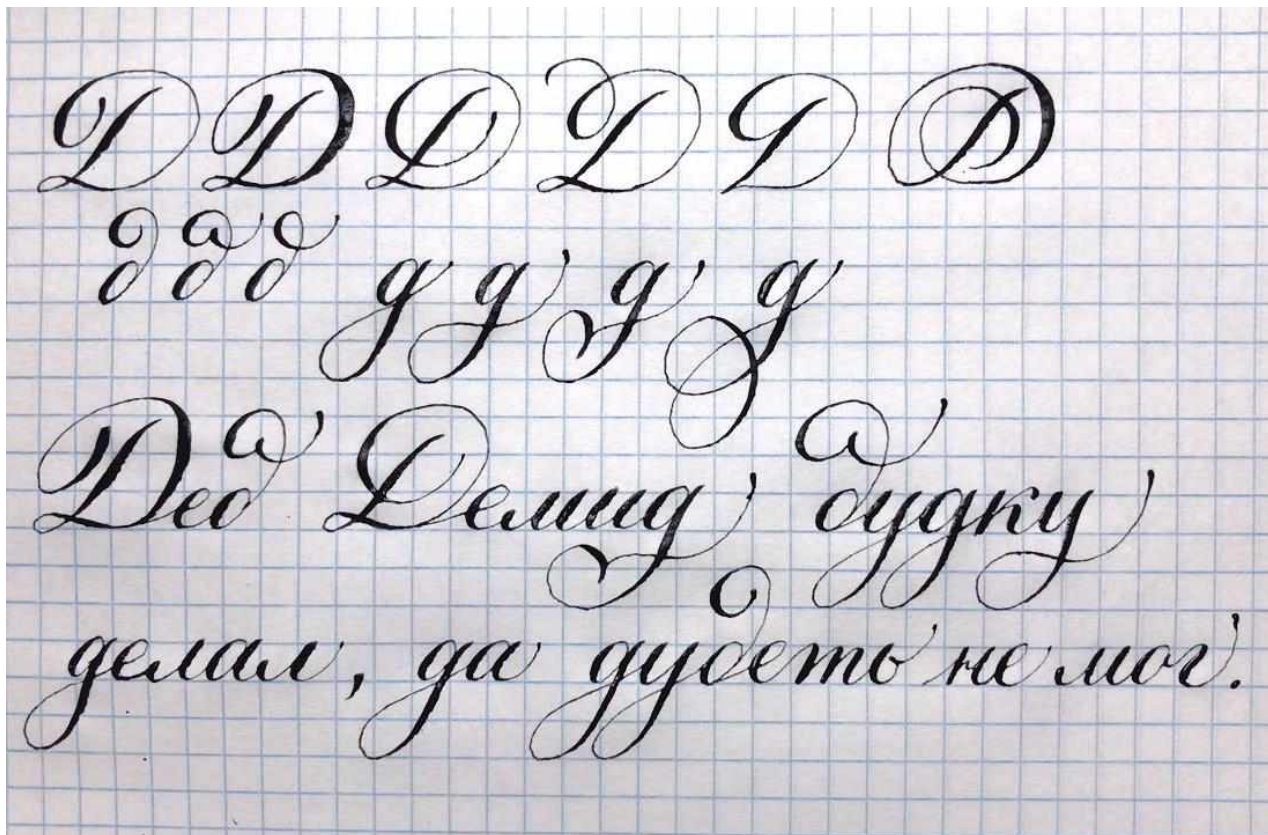 Д Д Д Д Д Д
д д д д д д д
Дед Демид дудку
делал, да дудеть не мог.